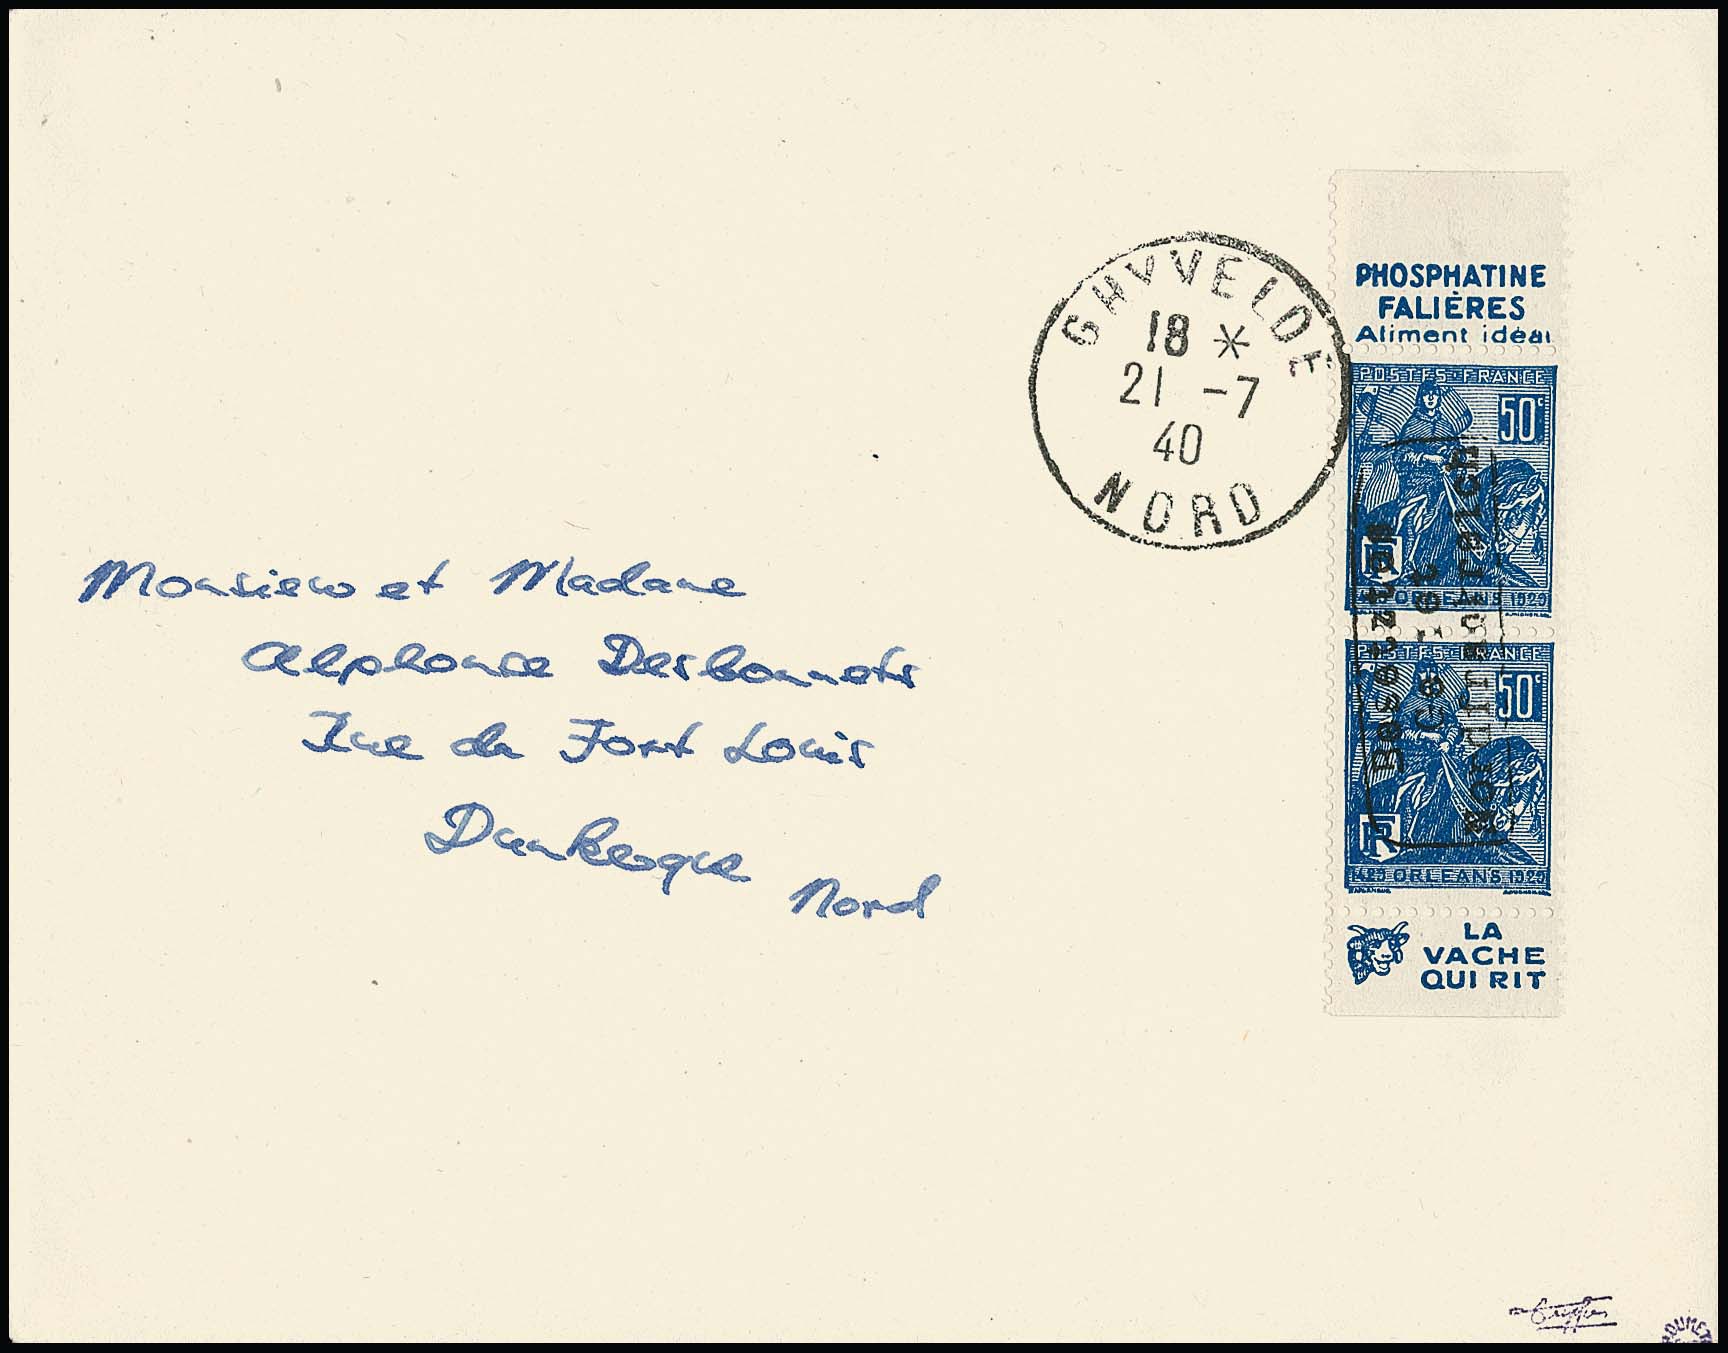 GHYVELDE
18 *
21 -7
40
NORD
PHOSPHATINE
FALIÈRES
Aliment idéal
POSTES FRANCE
50c
RF
1429 ORLEANS 1929
Besetztes
Gebiet
Nordfrankreich
POSTES FRANCE
50c
RF
1429 ORLEANS 1929
LA
VACHE
QUI RIT
Monsieur et Madame
Alphonse Desbonnets
Rue du Fort Louis
Dunkerque
Nord
ROUMET